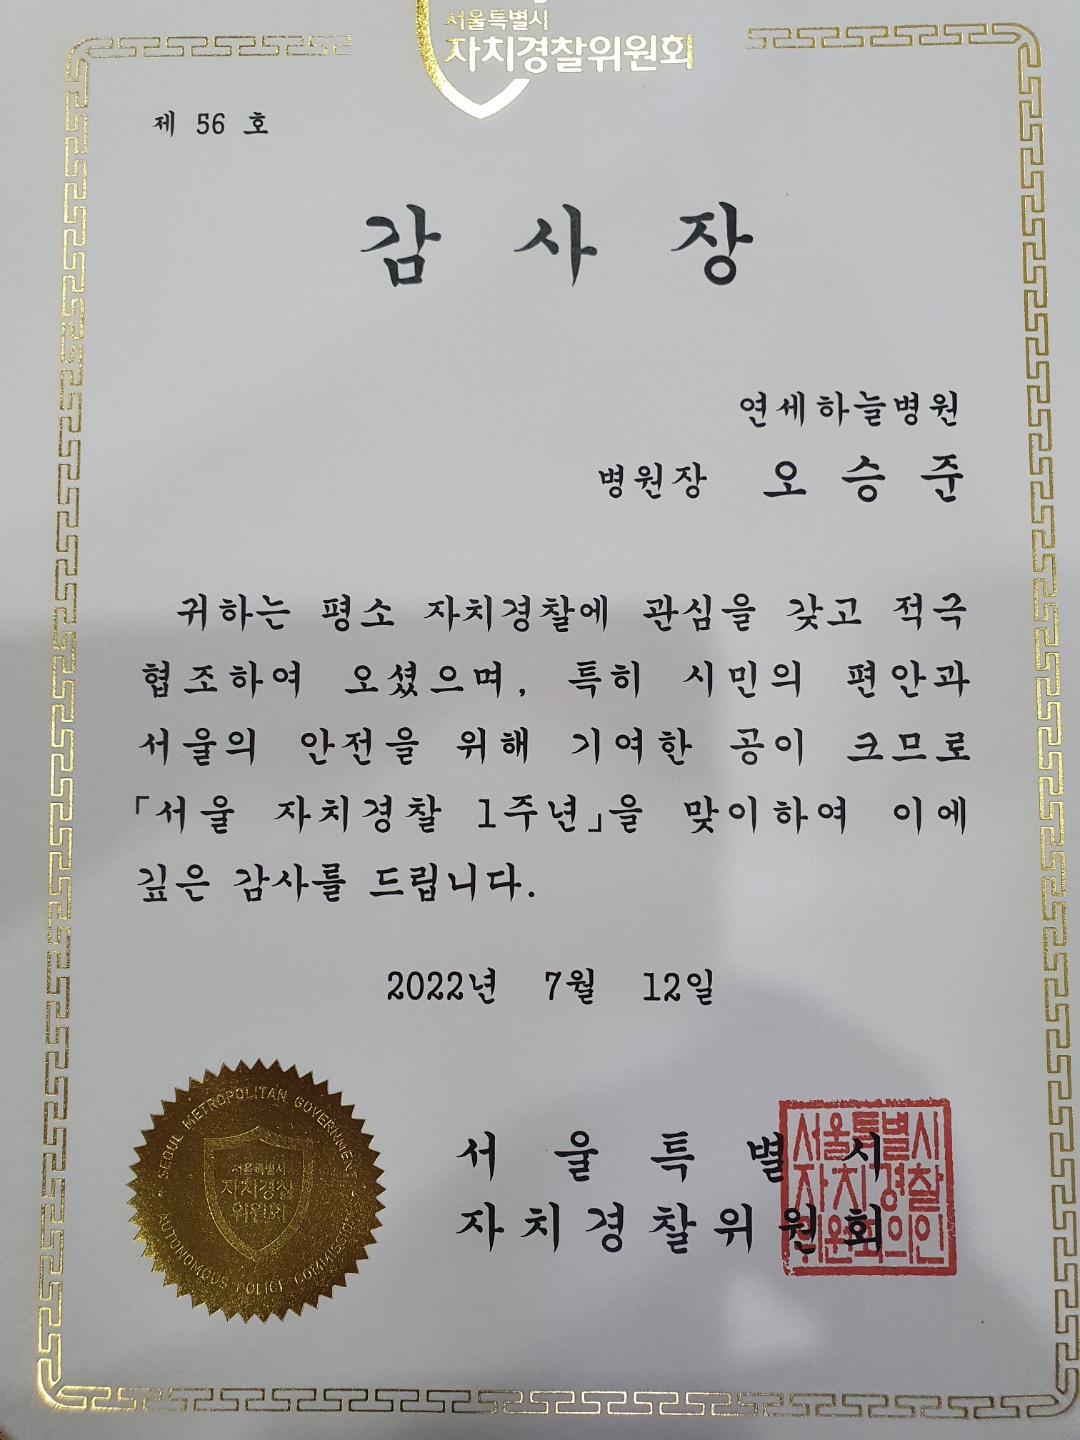 서울특별시
자치경찰위원회
제 56 호
감 사 장
연세하늘병원
병원장 오 승 준
귀하는 평소 자치경찰에 관심을 갖고 적극
협조하여 오셨으며, 특히 시민의 편안과
서울의 안전을 위해 기여한 공이 크므로
「서울 자치경찰 1주년」을 맞이하여 이에
깊은 감사를 드립니다.
2022년 7월 12일
SEOUL METROPOLITAN GOVERNMENT
서울특별시
자치경찰
위원회
AUTONOMOUS POLICE COMMISSION
서 울 특 별 시
자 치 경 찰 위 원 회
서울특별시
자치경찰
위원회의인